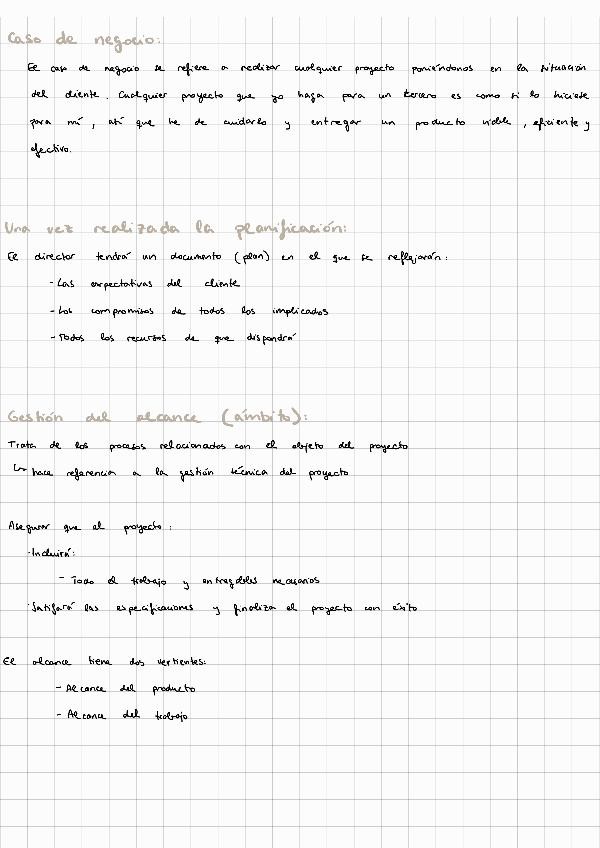 Caso de negocio:
El caso de negocio se refiere a realizar cualquier proyecto poniéndonos en la situación
del cliente. Cualquier proyecto que yo haga para un tercero es como si lo hiciese
para mí, así que he de cuidarlo y entregar un producto viable, eficiente y
efectivo.
Una vez realizada la planificación:
El director tendrá un documento (plan) en el que se reflejarán:
- Las expectativas del cliente
- Los compromisos de todos los implicados
- Todos los recursos de que dispondrá
Gestión del alcance (ámbito):
Trata de los procesos relacionados con el objeto del proyecto
↳ hace referencia a la gestión técnica del proyecto
Asegurar que el proyecto:
· Incluirá:
- Todo el trabajo y entregables necesarios
· Satisfará las especificaciones y finaliza el proyecto con éxito
El alcance tiene dos vertientes:
- Alcance del producto
- Alcance del trabajo